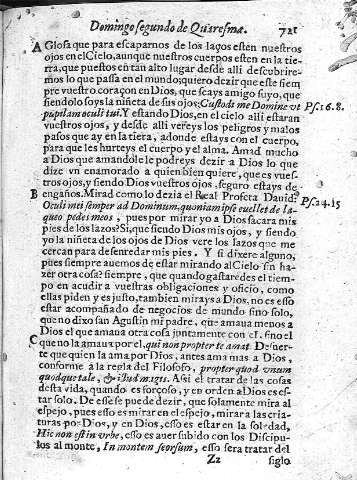 Domingo segundo de Quaresma. 721
A Glosa que para escaparnos de los lazos esten nuestros
ojos en el Cielo, aunque nuestros cuerpos esten en la tie-
rra, que puestos en tan alto lugar desde alli descubrire-
mos lo que passa en el mundo; quiero dezir que este siem
pre vuestro coraçon en Dios, que seays amigo suyo, que
siendolo soys la niñeta de sus ojos; Custodi me Domine vt Ps. 16.8.
pupilam oculi tui. Y estando Dios, en el cielo alli estaran
vuestros ojos, y desde alli vereys los peligros y malos
passos que ay en la tierra, adonde estays con el cuerpo,
para que les hurteys el cuerpo y el alma. Amad mucho
a Dios que amandole podreys dezir a Dios lo que
dize vn enamorado a quien bien quiere, que es vues-
tros ojos, y siendo Dios vuestros ojos, seguro estays de
B engaños. Mirad como lo dezia el Real Profeta Dauid?
Oculi mei semper ad Dominum, quoniam ipse euellet de la- Ps. 24.15
queo pedes meos, pues por mirar yo a Dios sacara mis
pies de los lazos? Si, que siendo Dios mis ojos, y siendo
yo la niñeta de los ojos de Dios vere los lazos que me
cercan para desenredar mis pies. Y si dixere alguno,
pues siempre auemos de estar mirando al Cielo sin ha-
zer otra cosa? siempre, que quando gastaredes el tiem-
po en acudir a vuestras obligaciones y oficio, como
ellas piden y es justo, tambien mirays a Dios, no es esso
estar acompañado de negocios de mundo sino solo,
que no dixo san Agustin mi padre, que amaua menos a
Dios el que amaua otra cosa juntamente con el, sino el
C que no la amaua por el, qui non propter te amat. De suer-
te que quien la ama por Dios, antes ama mas a Dios,
conforme à la regla del Filosofo, propter quod vnum
quodque tale, & illud magis. Assi el tratar de las cosas
desta vida, quando es forçoso, y en orden a Dios es es-
tar solo. De esse se puede dezir, que solamente mira al
espejo, pues esso es mirar en el espejo, mirar a las cria-
turas por Dios, y en Dios, esso es estar en la soledad,
Hic non est in vrbe, esso es auer subido con los Discipu-
los al monte, In montem seorsum, esso sera tratar del
Zz siglo